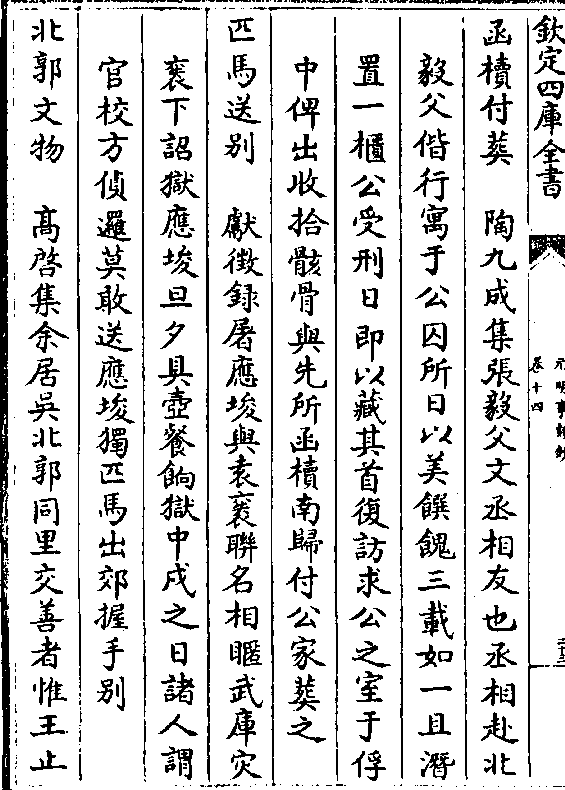 欽定四庫全書
元明事類鈔
卷十四
函櫝付葬　陶九成集張毅父文丞相友也丞相赴北
毅父偕行寓于公囚所日以美饌餽三載如一且潛
置一櫃公受刑日即以藏其首復訪求公之室于俘
中俾出收拾骸骨與先所函櫝南歸付公家葬之
匹馬送别　獻徴録屠應埈與袁袠聯名相暱武庫灾
袠下詔獄應埈旦夕具壺餐餉獄中戍之日諸人謂
官校方偵邏莫敢送應埈獨匹馬出郊握手别
北郭文物　高啓集余居吳北郭同里交善者惟王止